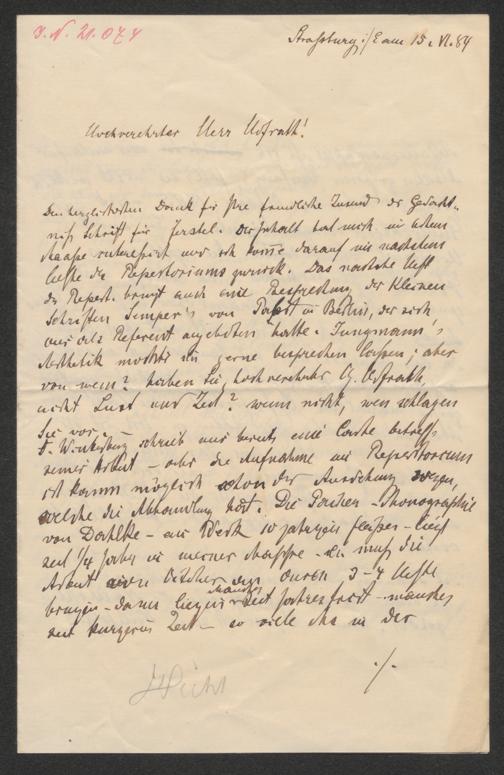 J. N. 21.074
Strassburg i/E am 15. VI. 84
Hochverehrter Herr Hofrath!
Den herzlichsten Dank für Ihre freundliche Zusend der Gedächt-
niß Schrift für Ferstel. Der Inhalt hat mich in hohem
Maaße interessirt und ich komme darauf im nächsten
Hefte des Repertoriums zurück. Das nächste Heft
des Repert. bringt auch eine Besprechung der Kleinen
Schriften Semper's von Pabst in Berlin, der sich
mir als Referent angeboten hatte. Jungmann's
Aesthetik möchte ich gerne besprechen lassen; aber
von wem? haben Sie, hochverehrter H. Hofrath,
nicht Lust und Zeit? wenn nicht, wen schlagen
Sie vor. –
schrieb mir bereits eine Carte betreffs
seiner Arbeit – aber die Aufnahme im Repertorium
ist kaum möglich schon der Ausdehnung wegen,
welche die Abhandlung hat. Die Monographie
von Dahlke – ein Werk 10 jährigen Fleißes – liegt
seit 1/4 Jahr in meiner Mappe – ich muß die
Arbeit durch 3-4 Hefte
bringen – dann liegen Manches seit Jahresfrist – manches
seit kürzerer Zeit – so viele in der
./.